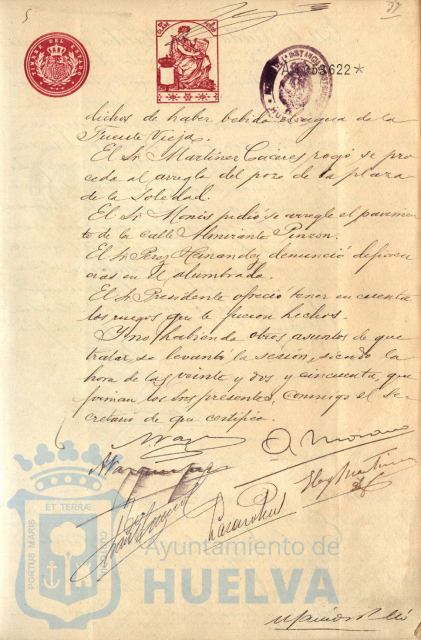 5
77
TIMBRE DEL ESTADO
A 0.053.622 *
HUELVA
dichos de haber bebido agua de la
Fuente Vieja.
El Sr. Martinez Cáceres rogó se pro
ceda al arreglo del pozo de la plaza
de la Soledad.
El Sr. Monís pidió se arregle el pavimen-
to de la calle Almirante Pinzon.
El Sr. Perez Hernandez denunció deficien
cias en el alumbrado.
El Sr. Presidente ofreció tener en cuenta
los ruegos que le fueron hechos.
Y no habiendo otros asuntos de que
tratar se levantó la sesión, siendo la
hora de las veinte y dos y cincuenta, que
firman los Sres presentes, conmigo el Se-
cretario de que certifico.
O. Moreno
PORTUS MARIS ET TERRÆ CUSTODIA
Ayuntamiento de
HUELVA